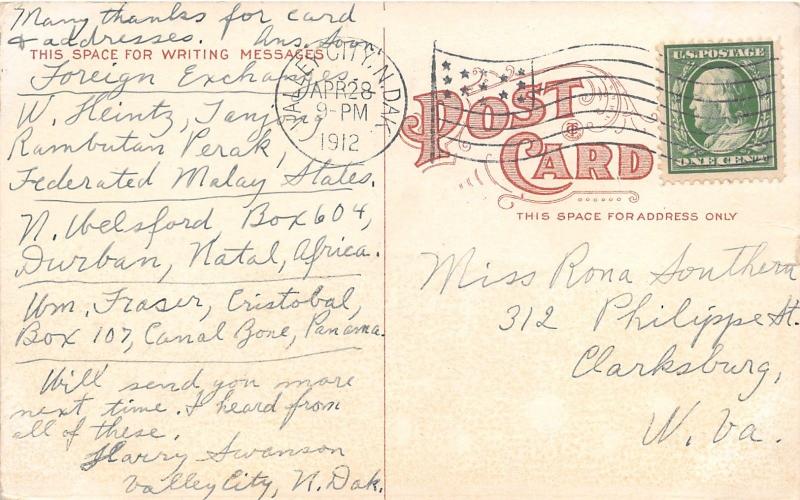 Many thanks for card
& addresses. Ans. soon
THIS SPACE FOR WRITING MESSAGES
Foreign Exchanges.
W. Heintz, Tanjong
Rambutan Perak,
Federated Malay States.
N. Welsford, Box 604,
Durban, Natal, Africa.
Wm. Fraser, Cristobal,
Box 107, Canal Zone, Panama.
Will send you more
next time. I heard from
all of these.
Harry Swanson
Valley City, N. Dak.
VALLEY CITY, N. DAK.
APR 28
9-PM
1912
POST
CARD
U.S. POSTAGE
ONE CENT
THIS SPACE FOR ADDRESS ONLY
Miss Rona Southern
312 Philippe St.
Clarksburg,
W. Va.